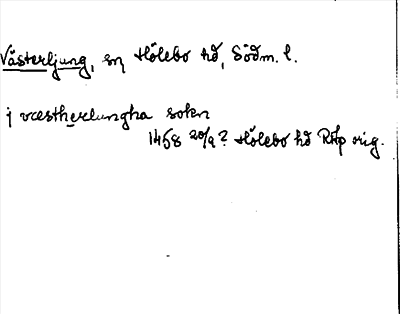 Västerljung, sn Hölebo hd, Södm. l.
j væstherlungha sokn
1458 20/9? Hölebo hd RAp orig.